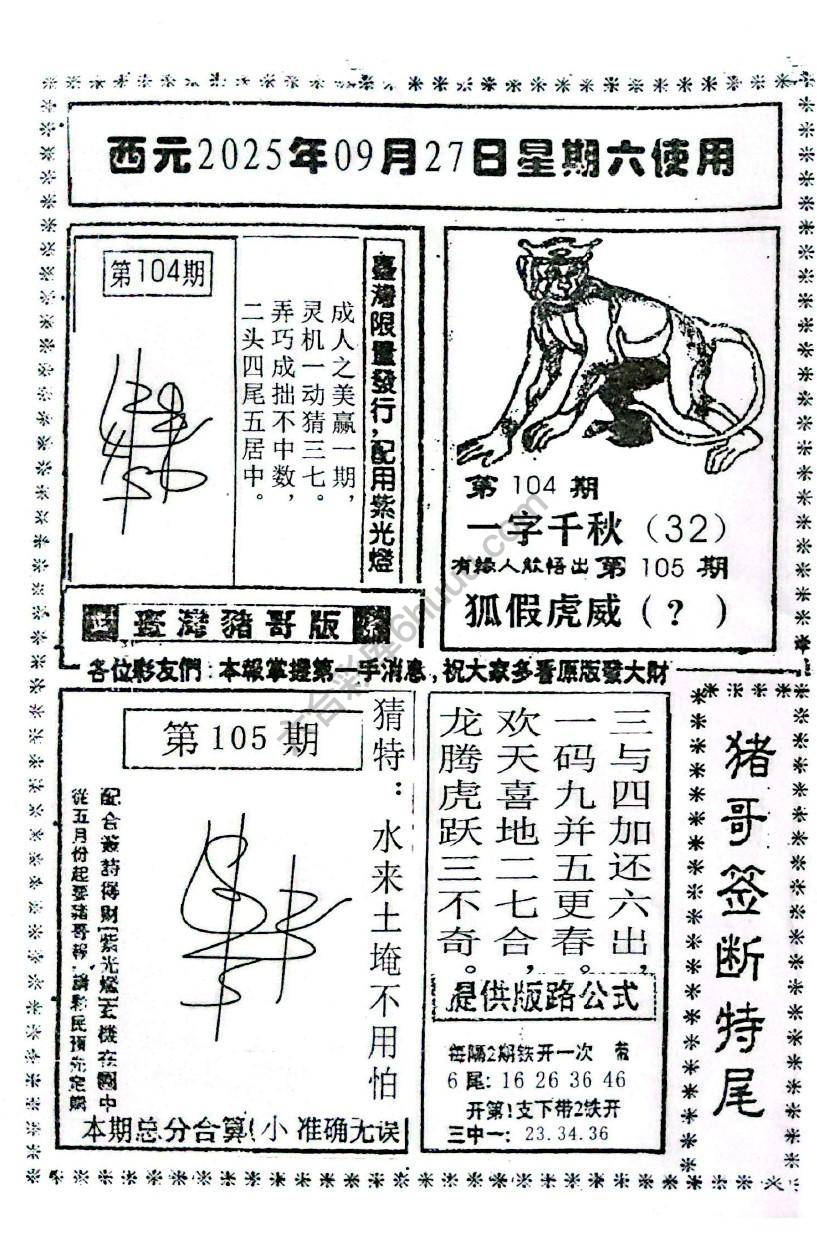 西元2025年09月27日星期六使用
第104期
臺灣限量發行,配用紫光燈
成人之美赢一期,
灵机一动猜三七。
弄巧成拙不中数,
二头四尾五居中。
第 104 期
一字千秋（32）
有緣人能悟出 第 105 期
狐假虎威（?）
臺灣豬哥版
各位彩友們:本報掌握第一手消息,祝大家多看原版發大財
第 105 期
猜特：水来土埯不用怕
配合簽詩得財[紫光燈]玄機在圖中
從五月份起要豬哥報,請彩民預先定購
本期总分合算!小 准确无误
三与四加还六出,
一码九并五更春。
欢天喜地二七合,
龙腾虎跃三不奇。
提供版路公式
每隔2期铁开一次
6尾: 16 26 36 46
开第1支下带2铁开
三中一: 23.34.36
猪哥签断特尾